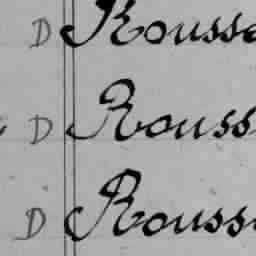 D Rousse
D Rouss
D Rousse